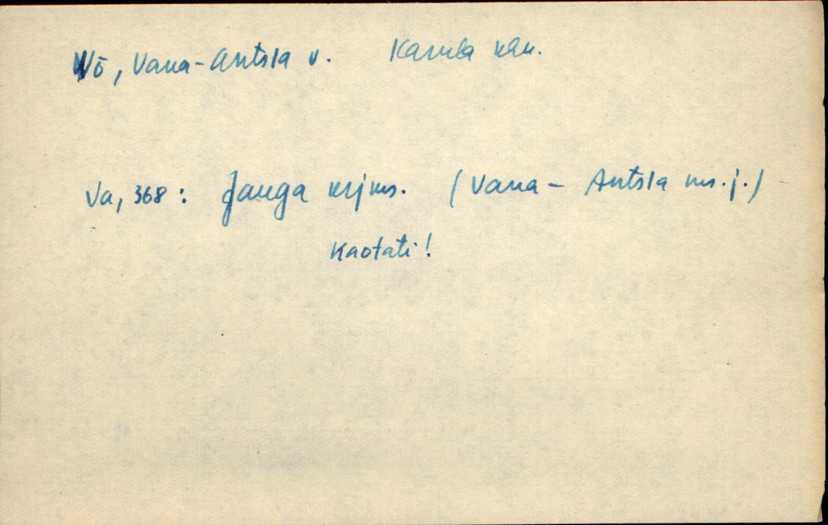 Võ, Vana-Antsla v. Karula khk.
Va, 368: Jauga krjms. (Vana-Antsla ms. j.)
Kaotati!